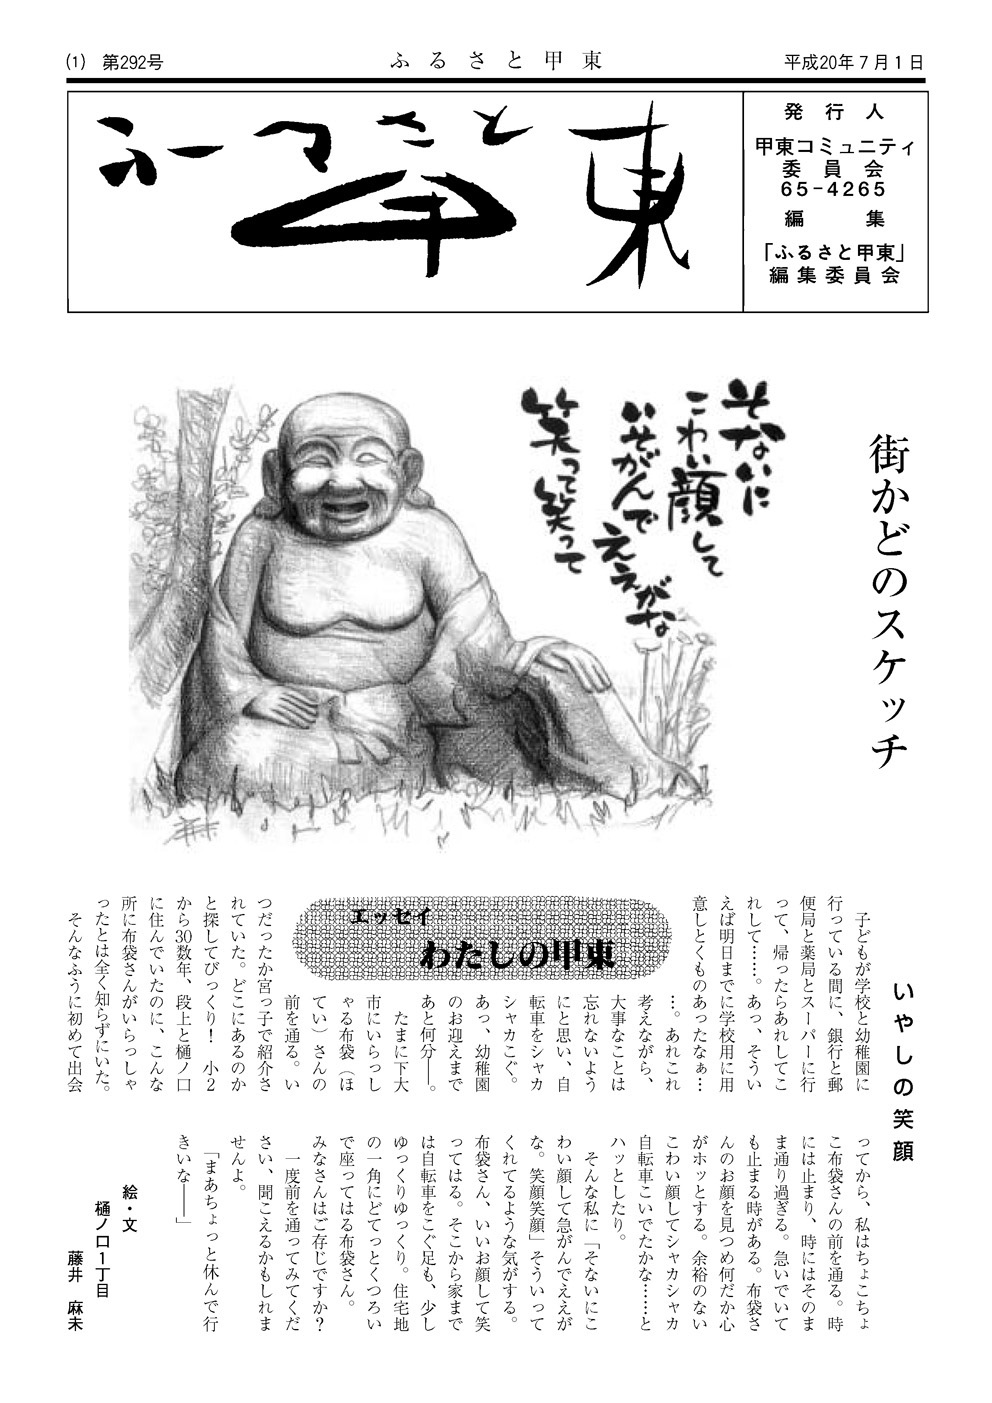 (1) 第292号
ふるさと甲東
平成20年7月1日
ふるさと甲東
発行人
甲東コミュニティ
委員会
65-4265
編集
「ふるさと甲東」
編集委員会
街かどのスケッチ
そないに
こわい顔して
いそがんで
ええがな
笑って笑って
エッセイ
わたしの甲東
いやしの笑顔
子どもが学校と幼稚園に
行っている間に、銀行と郵
便局と薬局とスーパーに行
って、帰ったらあれしてこ
れして……。あっ、そうい
えば明日までに学校用に用
意しとくものあったなぁ…
…。あれこれ
考えながら、
大事なことは
忘れないよう
にと思い、自
転車をシャカ
シャカこぐ。
あっ、幼稚園
のお迎えまで
あと何分―。
たまに下大
市にいらっし
ゃる布袋（ほ
てい）さんの
前を通る。い
つだったか宮っ子で紹介さ
れていた。どこにあるのか
と探してびっくり！　小2
から30数年、段上と樋ノ口
に住んでいたのに、こんな
所に布袋さんがいらっしゃ
ったとは全く知らずにいた。
そんなふうに初めて出会
ってから、私はちょこちょ
こ布袋さんの前を通る。時
には止まり、時にはそのま
ま通り過ぎる。急いでいて
も止まる時がある。布袋さ
んのお顔を見つめ何だか心
がホッとする。余裕のない
こわい顔してシャカシャカ
自転車こいでたかな……と
ハッとしたり。
そんな私に「そないにこ
わい顔して急がんでええが
な。笑顔笑顔」そういって
くれてるような気がする。
布袋さん、いいお顔して笑
ってはる。そこから家まで
は自転車をこぐ足も、少し
ゆっくりゆっくり。住宅地
の一角にどてっとくつろい
で座ってはる布袋さん。
みなさんはご存じですか？
一度前を通ってみてくだ
さい、聞こえるかもしれま
せんよ。
「まあちょっと休んで行
きいな――」
絵・文
樋ノ口1丁目
藤井　麻未